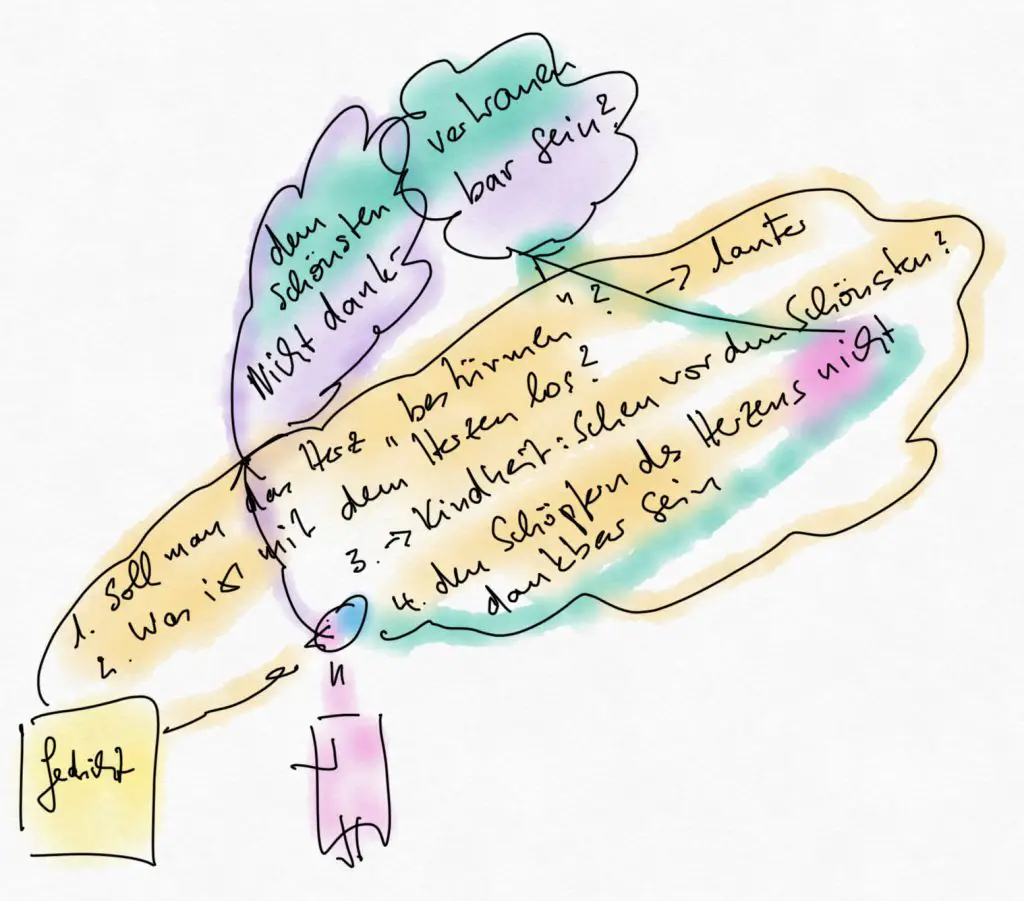 vertrauen
bar sein?
dem
schönsten
Nicht dank-
1. Soll man das Herz "bestürmen"? → lauter
2. Was ist mit dem Herzen los?
3. → Kindheit: Scheu vor dem Schönsten?
4. den Schöpfern des Herzens nicht
dankbar sein
Gedicht